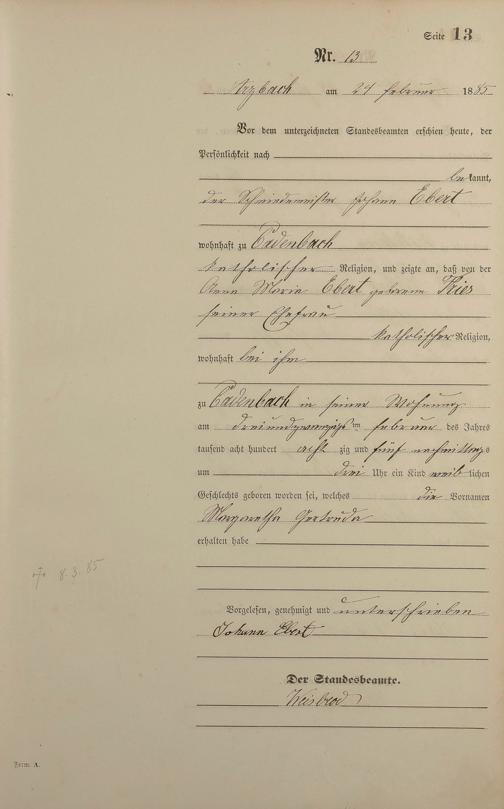 Seite 13
Nr. 13
Arzbach am 24 Februar 1885
Vor dem unterzeichneten Standesbeamten erschien heute, der
Persönlichkeit nach
bekannt,
der Schmiedemeister Johann Ebert
wohnhaft zu Cadenbach
katholischer Religion, und zeigte an, daß von der
Anna Maria Ebert geborene Fries
seiner Ehefrau
katholischer Religion,
wohnhaft bei ihm
zu Cadenbach in seiner Wohnung
am dreiundzwanzigsten Februar des Jahres
tausend acht hundert achtzig und fünf nachmittags
um drei Uhr ein Kind weiblichen
Geschlechts geboren worden sei, welches die Vornamen
Margaretha Gertruda
erhalten habe
† 8.3.85
Vorgelesen, genehmigt und unterschrieben
Johann Ebert
Der Standesbeamte.
Weisbrod
Form. A.